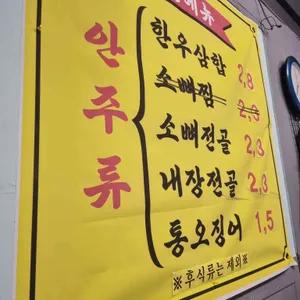 메뉴
안주류
한우삼합 2,8
소뼈찜 2,3
소뼈전골 2,3
내장전골 2,3
통오징어 1,5
※후식류는 제외※